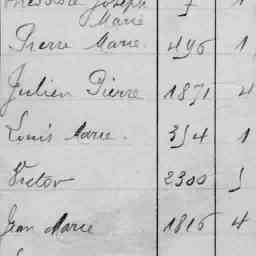 Joseph 7 1
Marie
Pierre Marie. 496 1
Julien Pierre 1871 4
Louis Marie. 354 1
Victor 2300 5
Jean Marie 1816 4